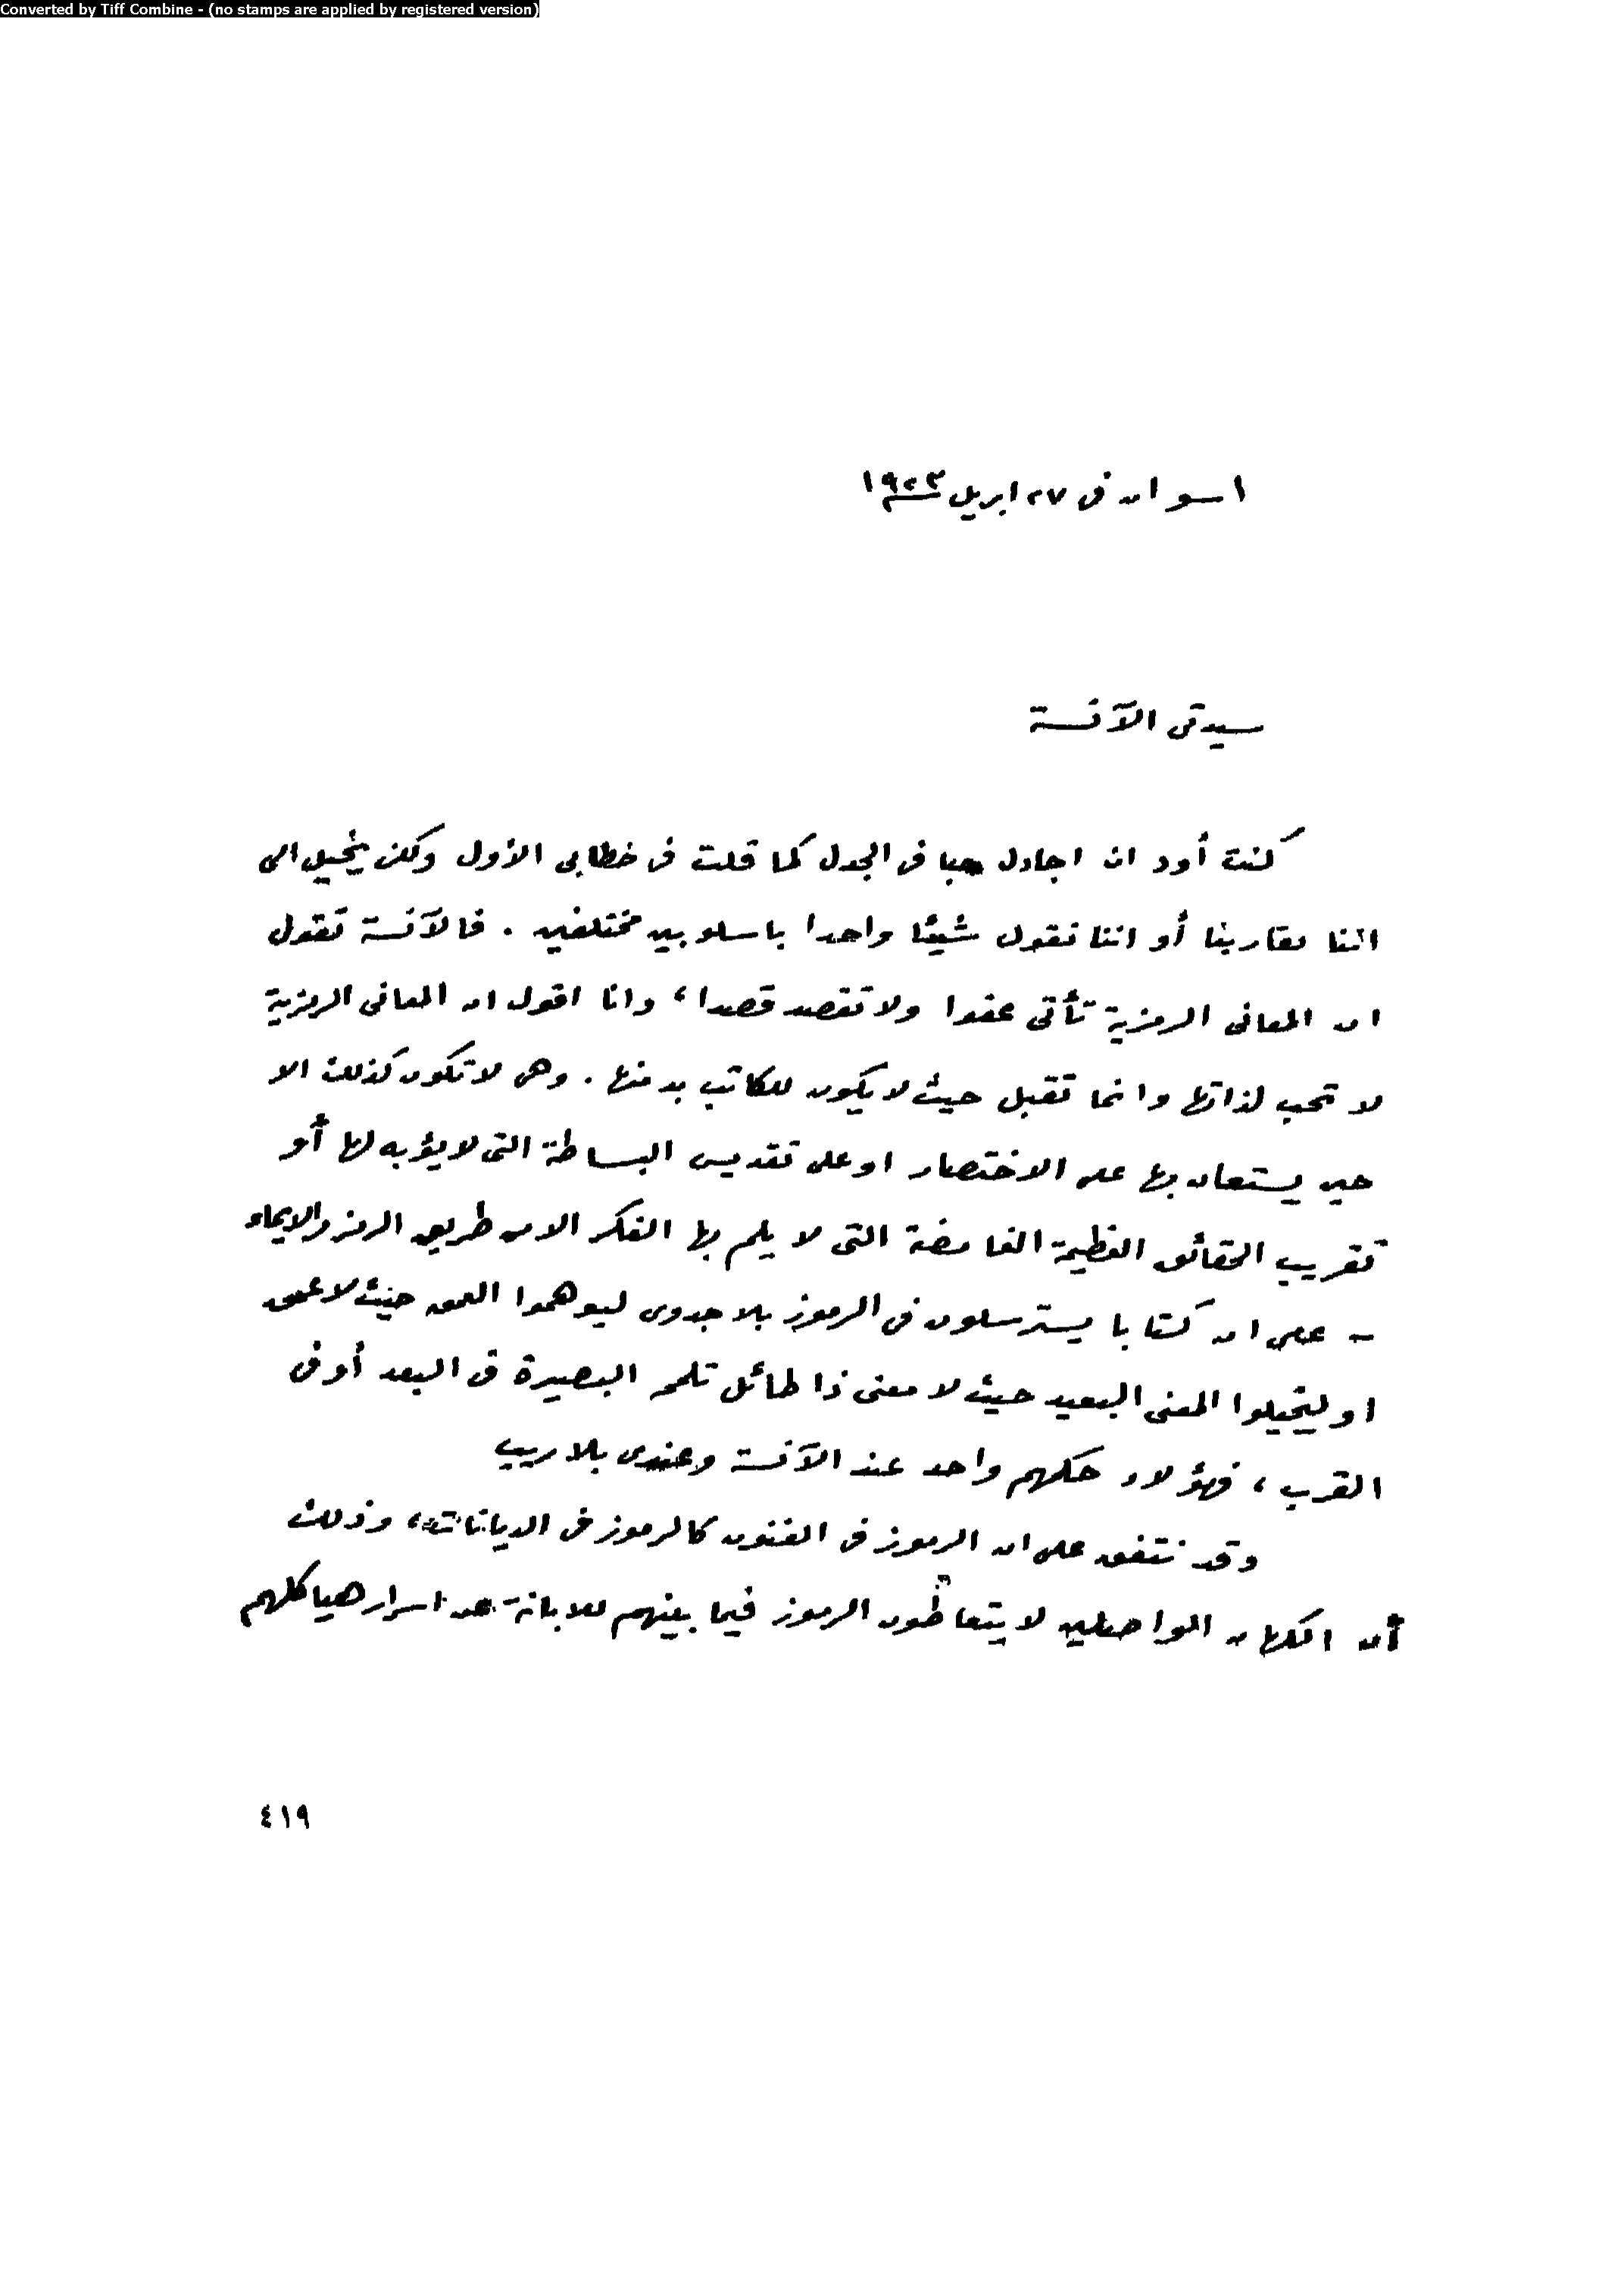 Converted by Tiff Combine - (no stamps are applied by registered version)
اسوان فى ٢٧ ابريل ١٩٢٣
سيدتى الآنسة
كنت أود ان اجادل حبا فى الجدل كما قلت فى خطابى الأول ولكن يخيل الى
اننا تقاربنا أو اننا نقول شيئا واحدا باسلوبين مختلفين . فالآنسة تقول
ان المعانى الرمزية تأتى عفوا ولا تقصد قصدا ، وانا اقول ان المعانى الرمزية
لا تحب لذاتها وانما تقبل حيث لا يكون للكاتب بد منها . وهى لا تكون كذلك الا
حين يستعان بها على الاختصار او على تقديس البساطة التى لا يؤبه لها أو
تقريب الحقائق العظيمة الغامضة التى لا يلم بها الفكر الا من طريق الرمز والايماء
- على ان كتابا يسترسلون فى الرموز بلا جدوى ليوهموا العمق حيث لا عمق
او ليخيلوا المعنى البعيد حيث لا معنى ذا طائل تلمحه البصيرة فى البعد أو فى
القرب ، فهؤلاء حكمهم واحد عند الآنسة وعندى بلا ريب
وقد نتفق على ان الرموز فى الفنون كالرموز فى الديانات ، وذلك
أن الكهان الواصلين لا يتعاطون الرموز فيما بينهم للابانة عن اسرار هياكلهم
٤١٩